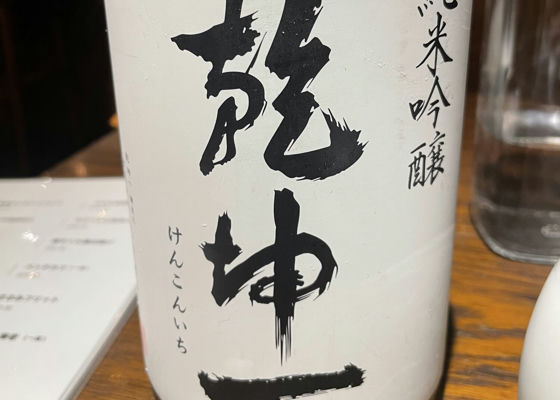 純米吟醸
乾坤一
けんこんいち